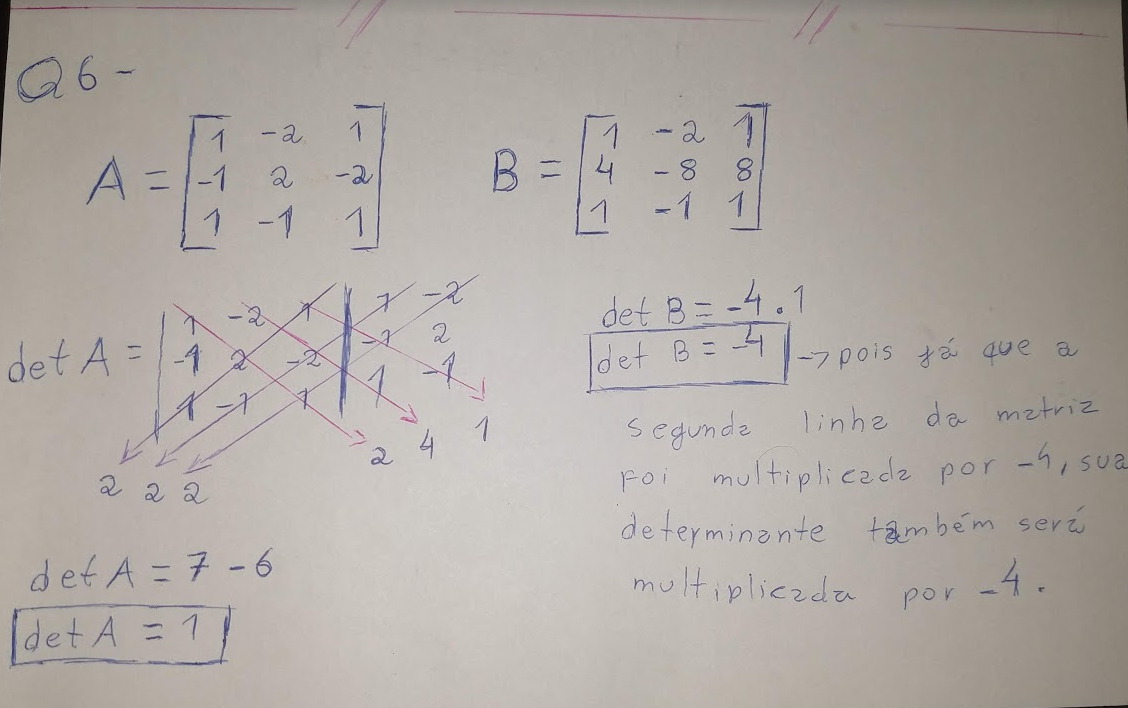 Q6-
A = [1 -2 1 B = [1 -2 1
-1 2 -2 4 -8 8
1 -1 1] 1 -1 1]
det A = | 1 -2 1 | 1 -2
-1 2 -2 | -1 2
1 -1 1 | 1 -1
2 2 2 2 4 1
det A = 7 - 6
det A = 1
det B = -4 . 1
det B = -4 → pois já que a
segunda linha da matriz
foi multiplicada por -4, sua
determinante também será
multiplicada por -4.